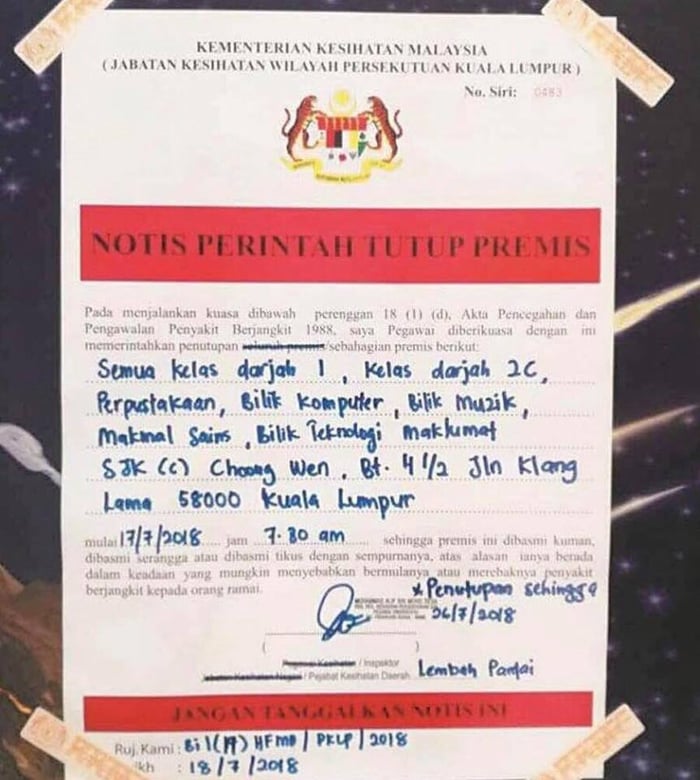 KEMENTERIAN KESIHATAN MALAYSIA
( JABATAN KESIHATAN WILAYAH PERSEKUTUAN KUALA LUMPUR )
No. Siri: 0483
NOTIS PERINTAH TUTUP PREMIS
Pada menjalankan kuasa dibawah perenggan 18 (1) (d), Akta Pencegahan dan
Pengawalan Penyakit Berjangkit 1988, saya Pegawai diberikuasa dengan ini
memerintahkan penutupan seluruh premis/sebahagian premis berikut:
Semua kelas darjah 1, Kelas darjah 2C,
Perpustakaan, Bilik Komputer, Bilik Muzik,
Makmal Sains, Bilik Teknologi maklumat
SJK (C) Choong Wen, Bt. 4 1/2 Jln Klang
Lama 58000 Kuala Lumpur
mulai 17/7/2018 jam 7.30 am sehingga premis ini dibasmi kuman,
dibasmi serangga atau dibasmi tikus dengan sempurnanya, atas alasan ianya berada
dalam keadaan yang mungkin menyebabkan bermulanya atau merebaknya penyakit
berjangkit kepada orang ramai.
* Penutupan sehingga
26/7/2018
( )
Pegawai Kesihatan / Inspektor
Jabatan Kesihatan Negeri / Pejabat Kesihatan Daerah Lembah Pantai
JANGAN TANGGALKAN NOTIS INI
Ruj. Kami : Bil (19) HFMD / PKLP / 2018
ikh : 18 / 7 / 2018